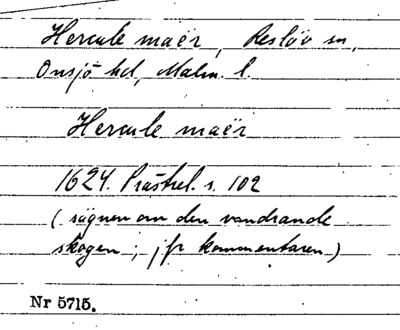 Hercule maër, Reslöv sn,
Onsjö hd, Malm. l.
Hercule maër
1624. Prästrel. s. 102
(sägnen om den vandrande
skogen; jfr kommentaren)
Nr 5715.